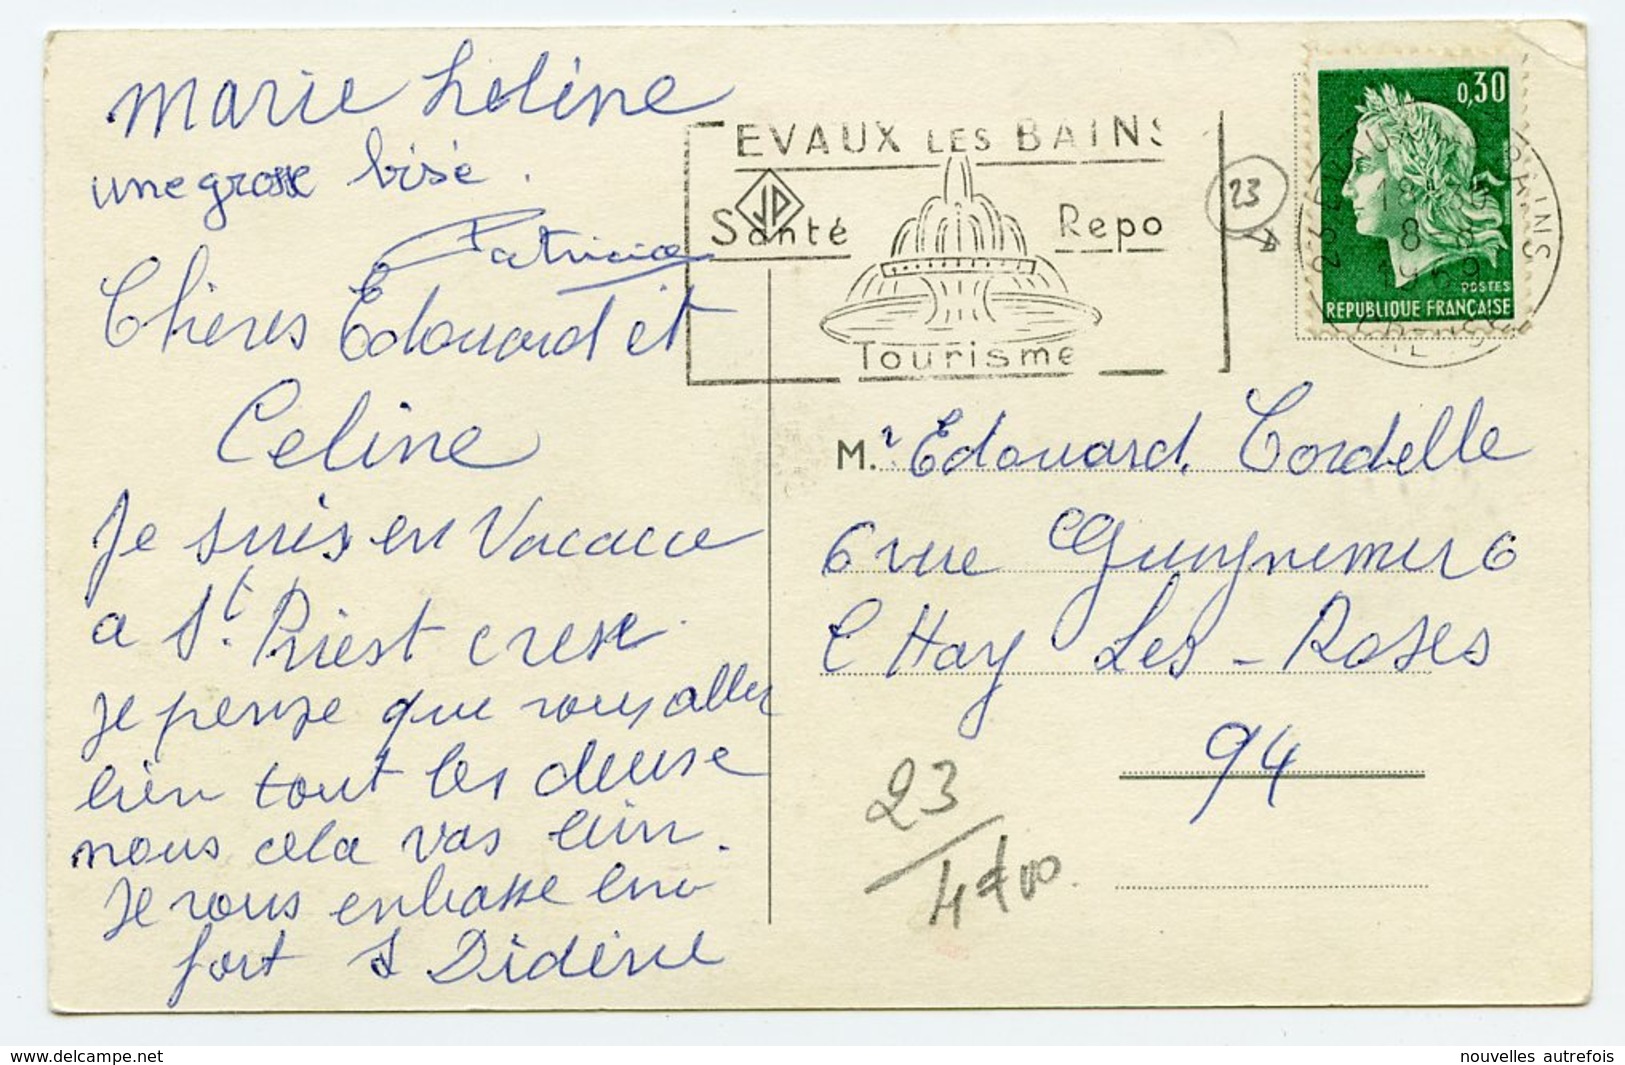 marie heline
une grosse bise.
Patricia
Chères Edouard et
Celine
Je suis en Vacacce
a St. Priest crese
je pense que vous aller
bien tout les deuse
nous cela vas bien.
Je vous enbasse bien
fort
Didine
EVAUX LES BAINS
JP
Santé
Repo
Tourisme
23
0,30
POSTES
REPUBLIQUE FRANÇAISE
23 EVAUX LES BAINS
18 30
8 8
1969
M.r Edouard Cordelle
6 rue Guynemer 6
l Hay Les-Roses
94
23
4€00
www.delcampe.net
nouvelles autrefois